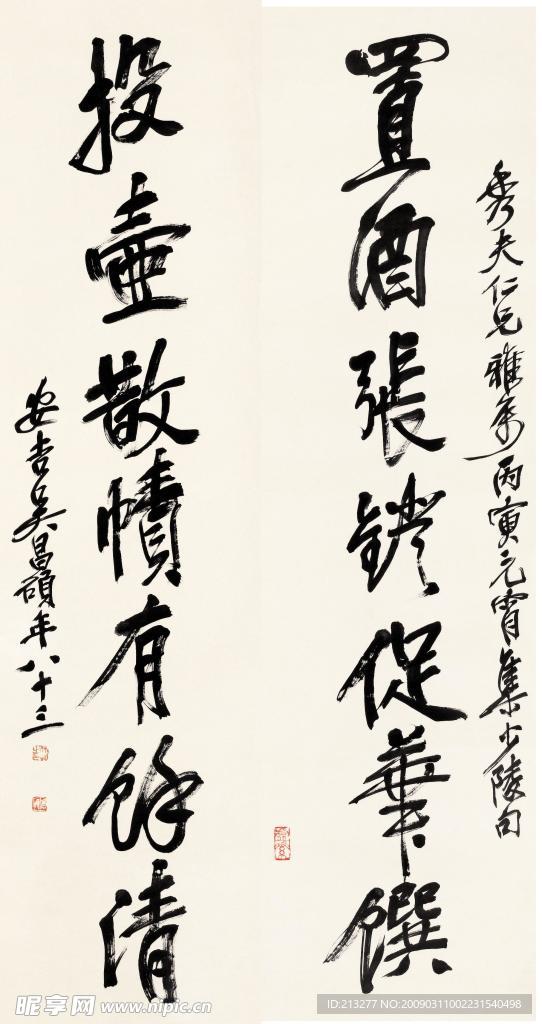 秀夫仁兄雅属丙寅元宵集少陵句
置酒張鐙促華饌
投壺散帙有餘清
安吉吴昌碩年八十三
昵享网 www.nipic.cn
ID:213277 NO:20090311002231540498